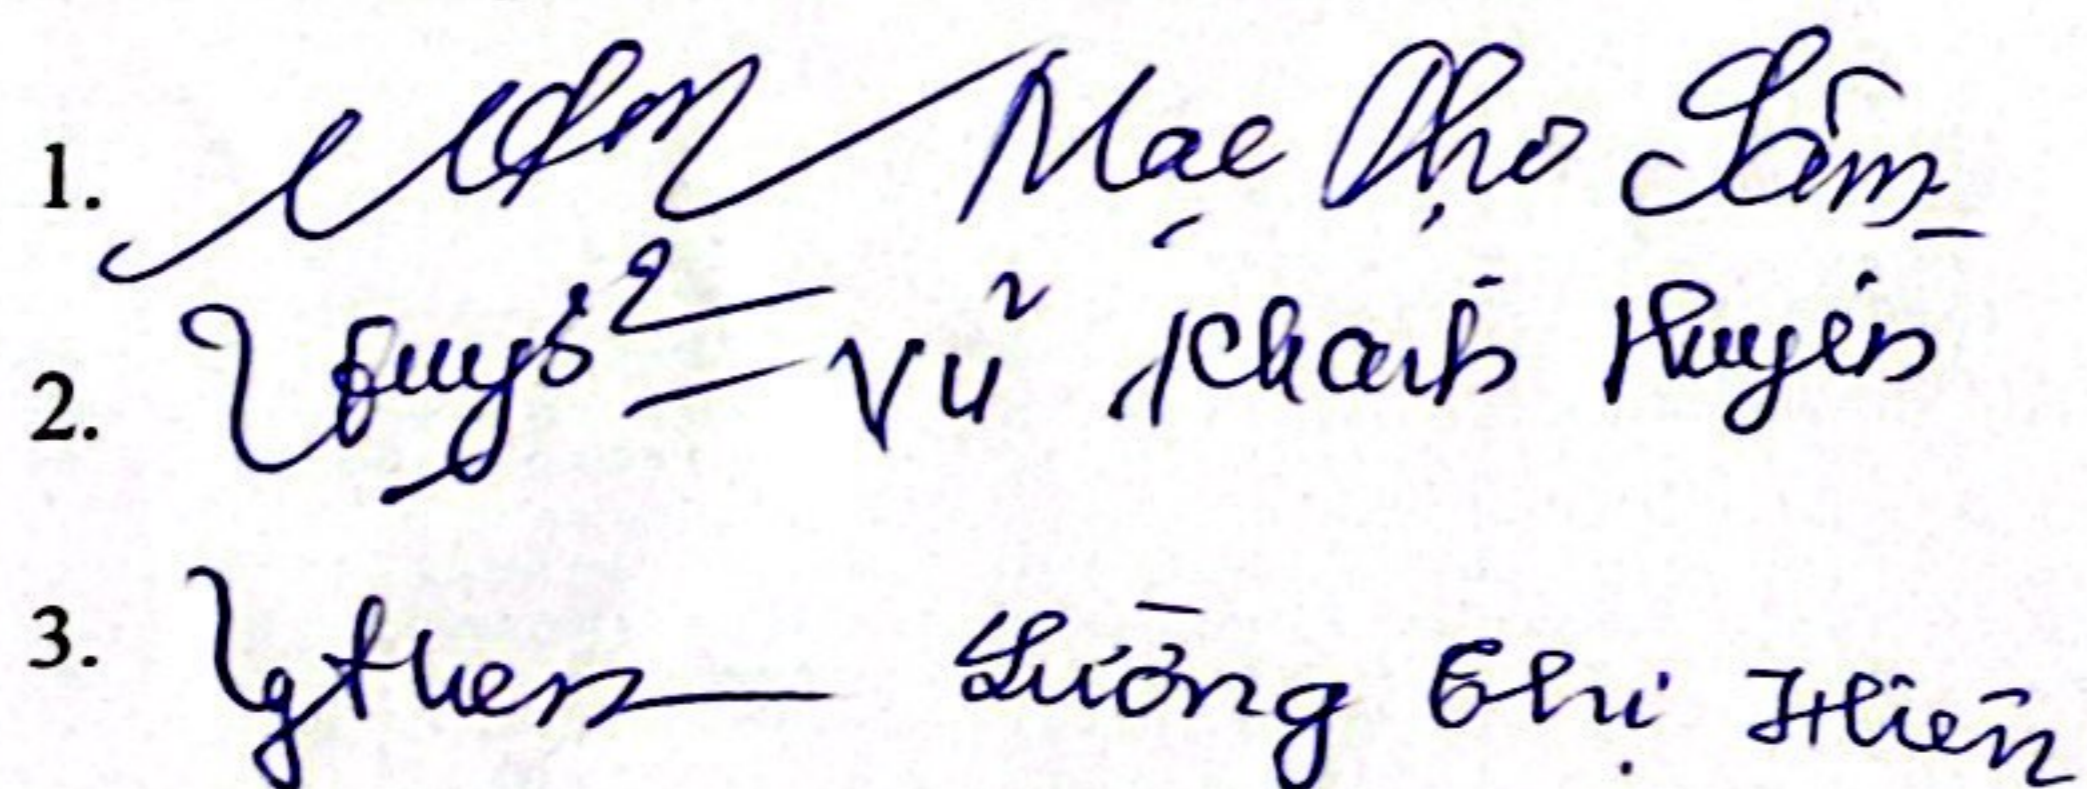 1. Mạc Thọ Lâm
2. Vũ Khánh Huyền
3. Lường Thị Hiền